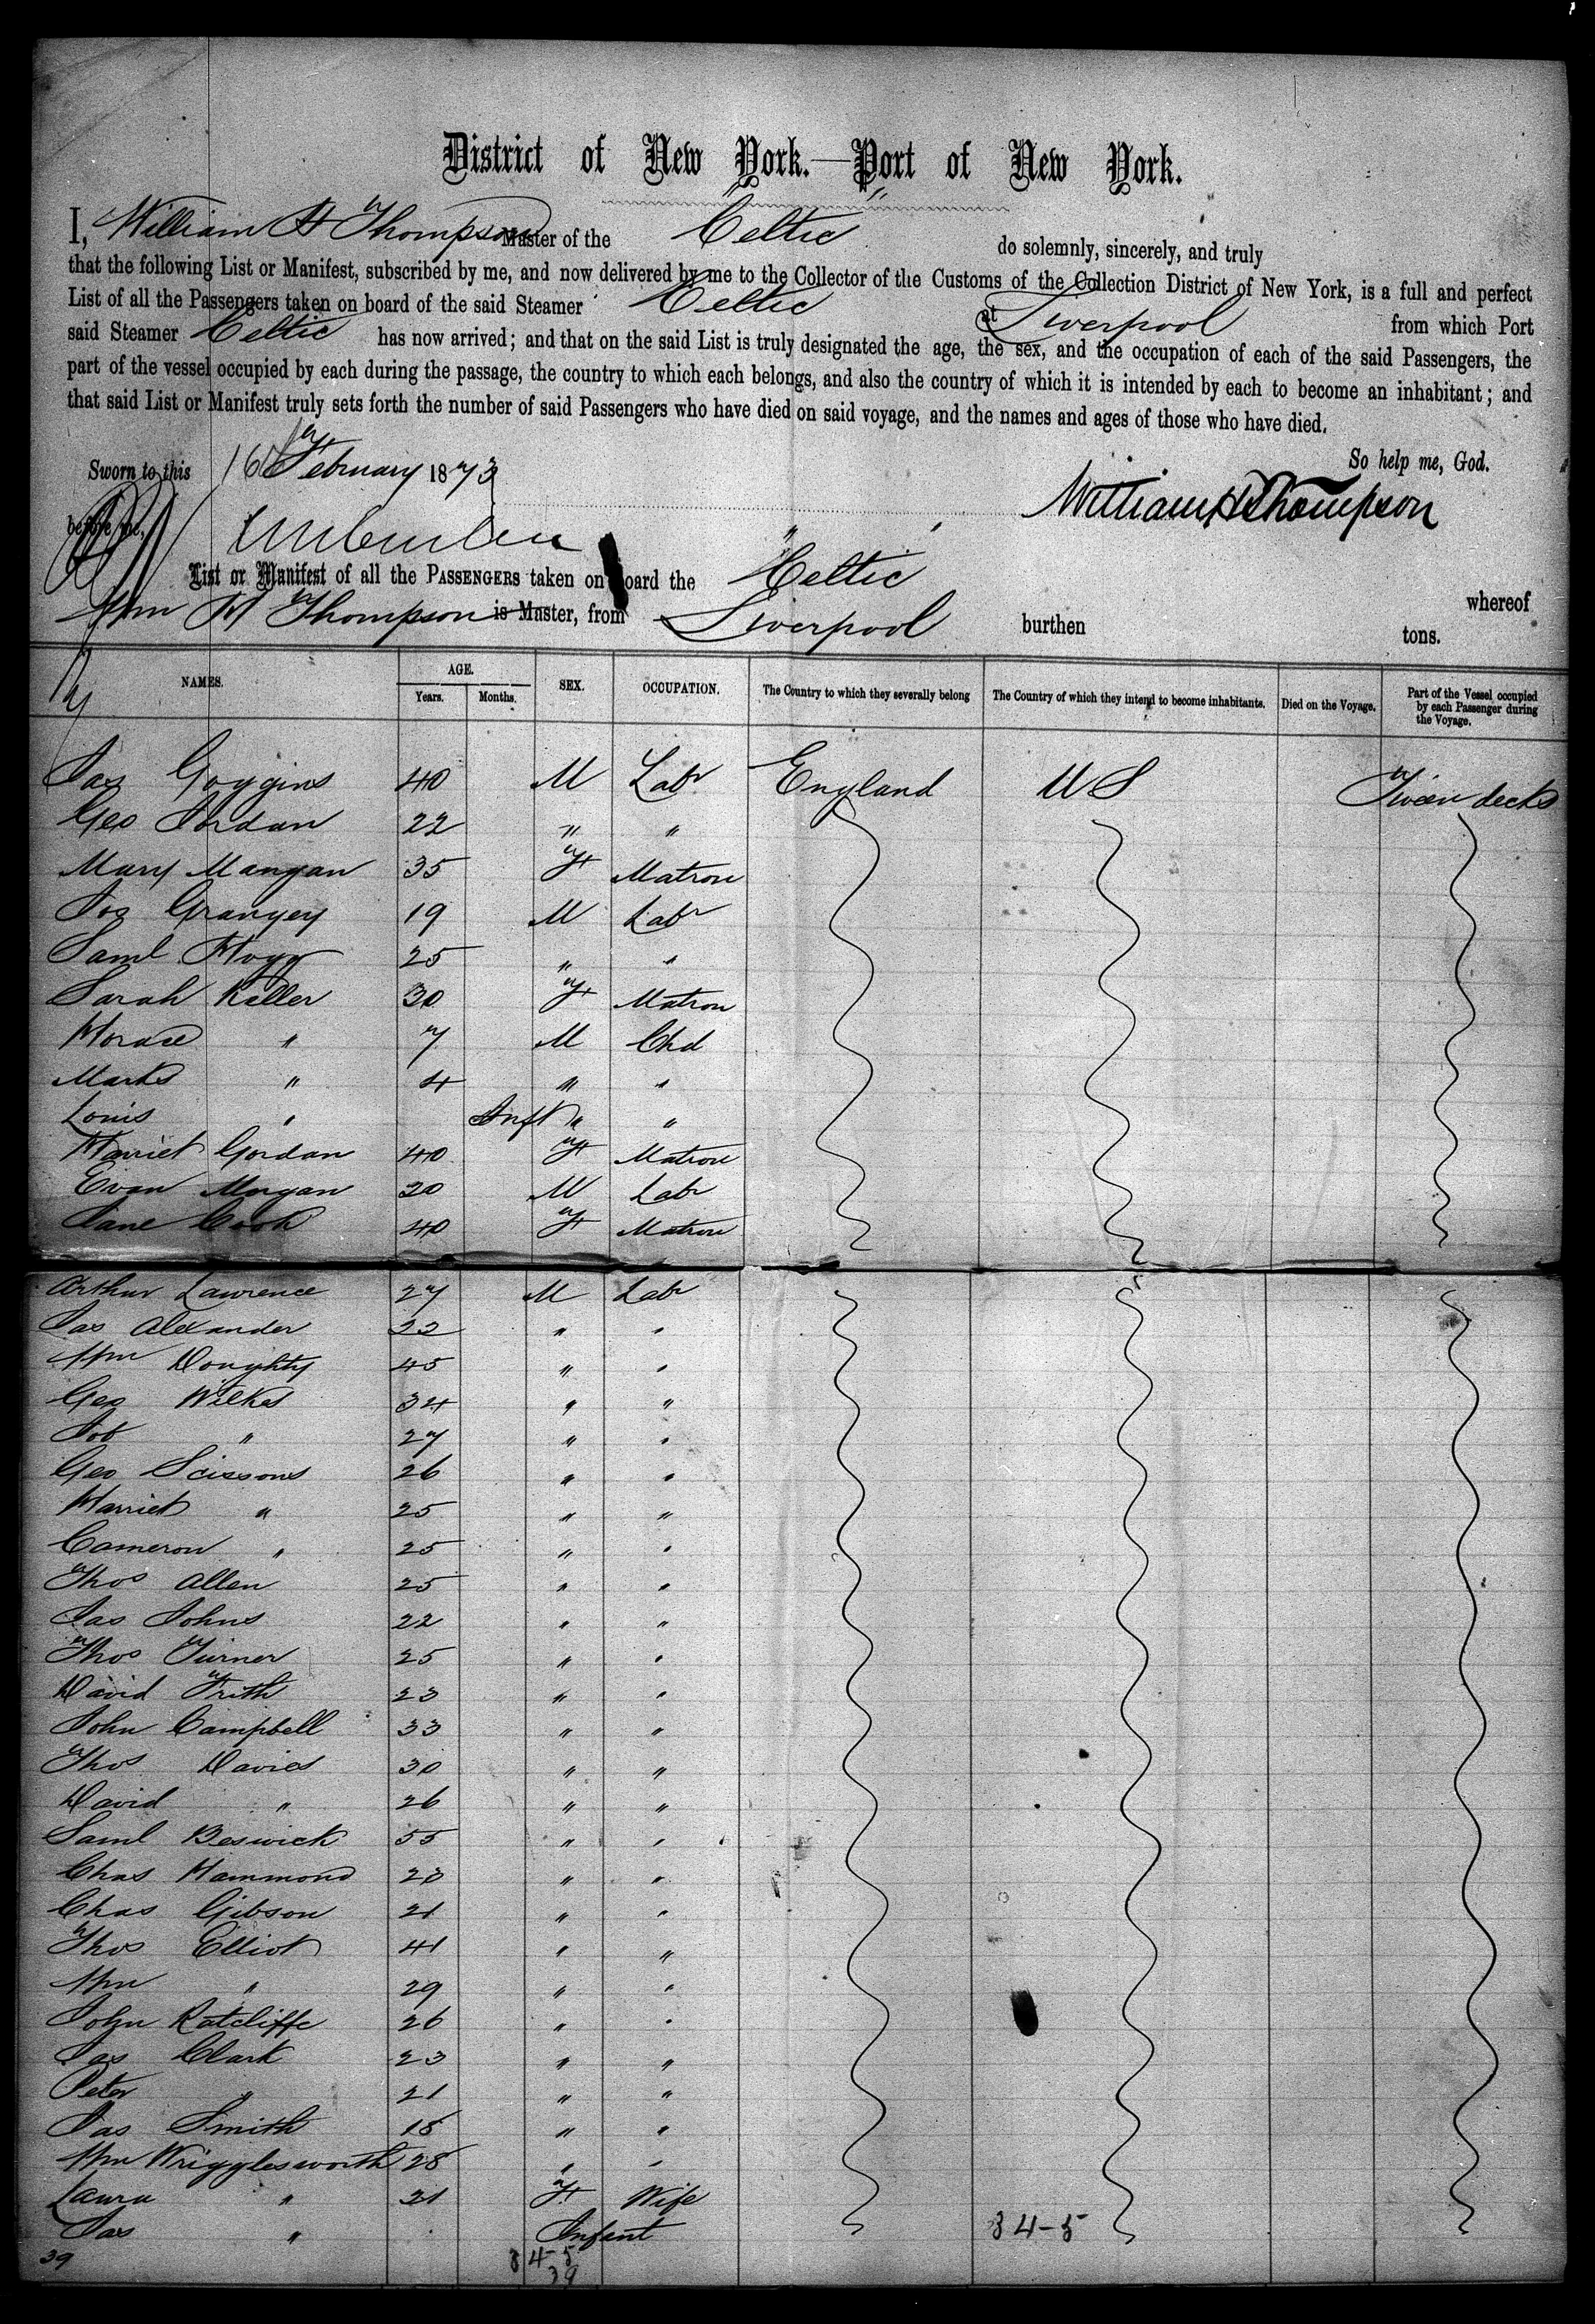 District of New York.—Port of New York.
I, William H Thompson Master of the Celtic do solemnly, sincerely, and truly
that the following List or Manifest, subscribed by me, and now delivered by me to the Collector of the Customs of the Collection District of New York, is a full and perfect
List of all the Passengers taken on board of the said Steamer Celtic at Liverpool from which Port
said Steamer Celtic has now arrived; and that on the said List is truly designated the age, the sex, and the occupation of each of the said Passengers, the
part of the vessel occupied by each during the passage, the country to which each belongs, and also the country of which it is intended by each to become an inhabitant; and
that said List or Manifest truly sets forth the number of said Passengers who have died on said voyage, and the names and ages of those who have died.
So help me, God.
Sworn to this 16 February 1873
William H Thompson
before me,
List or Manifest of all the PASSENGERS taken on board the Celtic whereof
Wm H Thompson is Master, from Liverpool burthen tons.
NAMES. AGE. SEX. OCCUPATION. The Country to which they severally belong The Country of which they intend to become inhabitants. Died on the Voyage. Part of the Vessel occupied by each Passenger during the Voyage.
Years. Months.
Jas Goggins 40 M Labr England U S Tween decks
Geo Jordan 22 " "
Mary Mangan 35 F Matron
Jos Grangey 19 M Labr
Saml Hogg 25 " "
Sarah Keller 30 F Matron
Horace " 7 M Chd
Marks " 4 " "
Louis " Inft " "
Harriet Gordan 40 F Matron
Evan Morgan 20 M Labr
Jane Cook 40 F Matron
Arthur Lawrence 27 M Labr
Jas Alexander 22 " "
Wm Doughty 45 " "
Geo Wilkes 34 " "
Job " 27 " "
Geo Scissons 26 " "
Harriet " 25 " "
Cameron " 25 " "
Thos Allen 25 " "
Jas Johns 22 " "
Thos Turner 25 " "
David Frith 23 " "
John Campbell 33 " "
Thos Davies 30 " "
David " 26 " "
Saml Beswick 55 " "
Chas Hammond 23 " "
Chas Gibson 21 " "
Thos Elliot 41 " "
Wm " 29 " "
John Ratcliffe 26 " "
Jas Clark 23 " "
Peter " 21 " "
Jas Smith 18 " "
Wm Wrigglesworth 28 " "
Laura " 21 F Wife
Jas " Infant 34-5
39 34-5
39